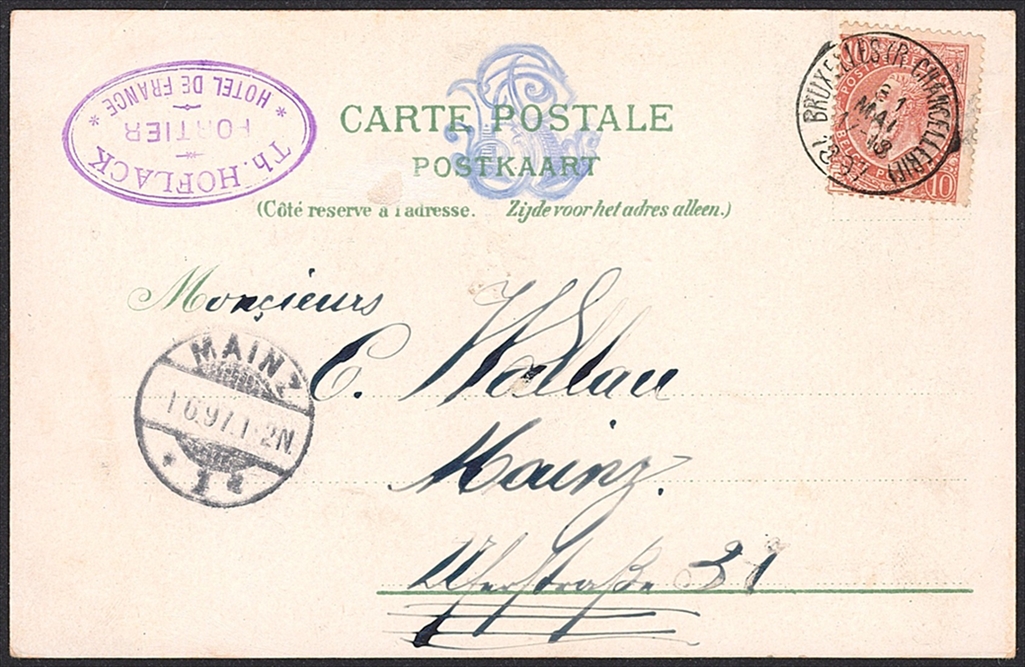 Th. HOFLACK
PORTIER
* HOTEL DE FRANCE *
CARTE POSTALE
POSTKAART
(Côté reserve a l'adresse. Zijde voor het adres alleen.)
BRUXELLES (R. CHANCELLERIE)
31
MAI
1897
10
Monsieurs
C. Wallau
Mainz.
Uferstraße 31
MAINZ
1.6.97.1-2N.
1